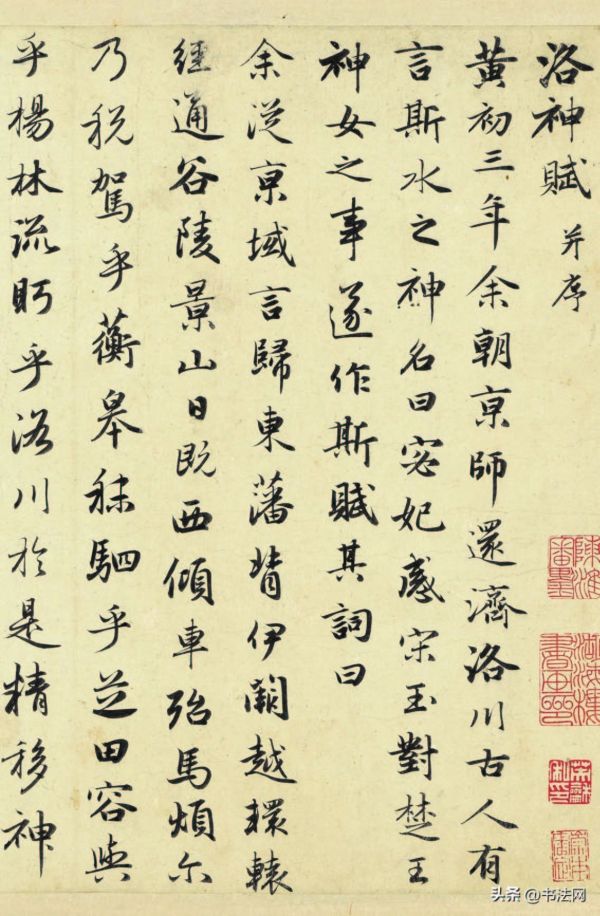 洛神賦 并序
黃初三年余朝京師還濟洛川古人有
言斯水之神名曰宓妃感宋玉對楚王
神女之事遂作斯賦其詞曰
余從京域言歸東藩背伊闕越轘轅
經通谷陵景山日既西傾車殆馬煩尔
乃税駕乎蘅皋秣駟乎芝田容與
乎楊林流眄乎洛川於是精移神
头条 @书法网